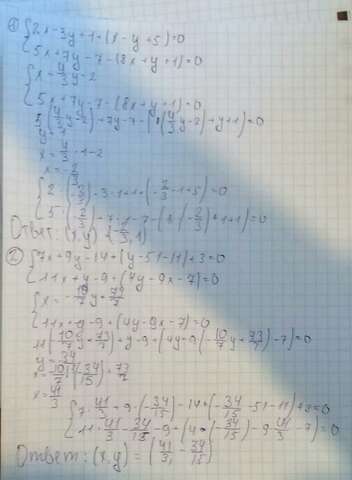 1) {2x-3y+1+(x-y+5)=0
5x+7y-7-(8x+y+1)=0
{x=4/3y-2
5x+7y-7-(8x+y+1)=0
5(4/3y-2)+7y-7-(8(4/3y-2)+y+1)=0
y=1
x=4/3·1-2
x=-2/3
{2·(-2/3)-3·1+1+(-2/3-1+5)=0
5·(-2/3)+7·1-7-(8·(-2/3)+1+1)=0
Ответ: (x,y)=(-2/3,1)
2) {7x+9y-14+(y-51-11)+3=0
11x+y-9+(4y-9x-7)=0
{x=-10/7y+73/7
11x+y-9+(4y-9x-7)=0
11(-10/7y+73/7)+y-9+(4y-9(-10/7y+73/7)-7)=0
y=-34/15
x=-10/7·(-34/15)+73/7
x=41/3
{7·41/3+9·(-34/15)-14+(-34/15-51-11)+3=0
11·41/3-34/15-9+(4·(-34/15)-9·41/3-7)=0
Ответ: (x,y)=(41/3,-34/15)